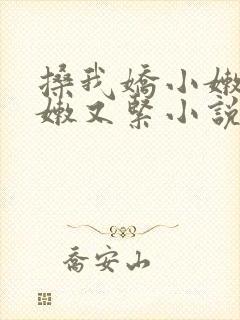 搡我嬌小嫩
嫩又緊小說
喬安山